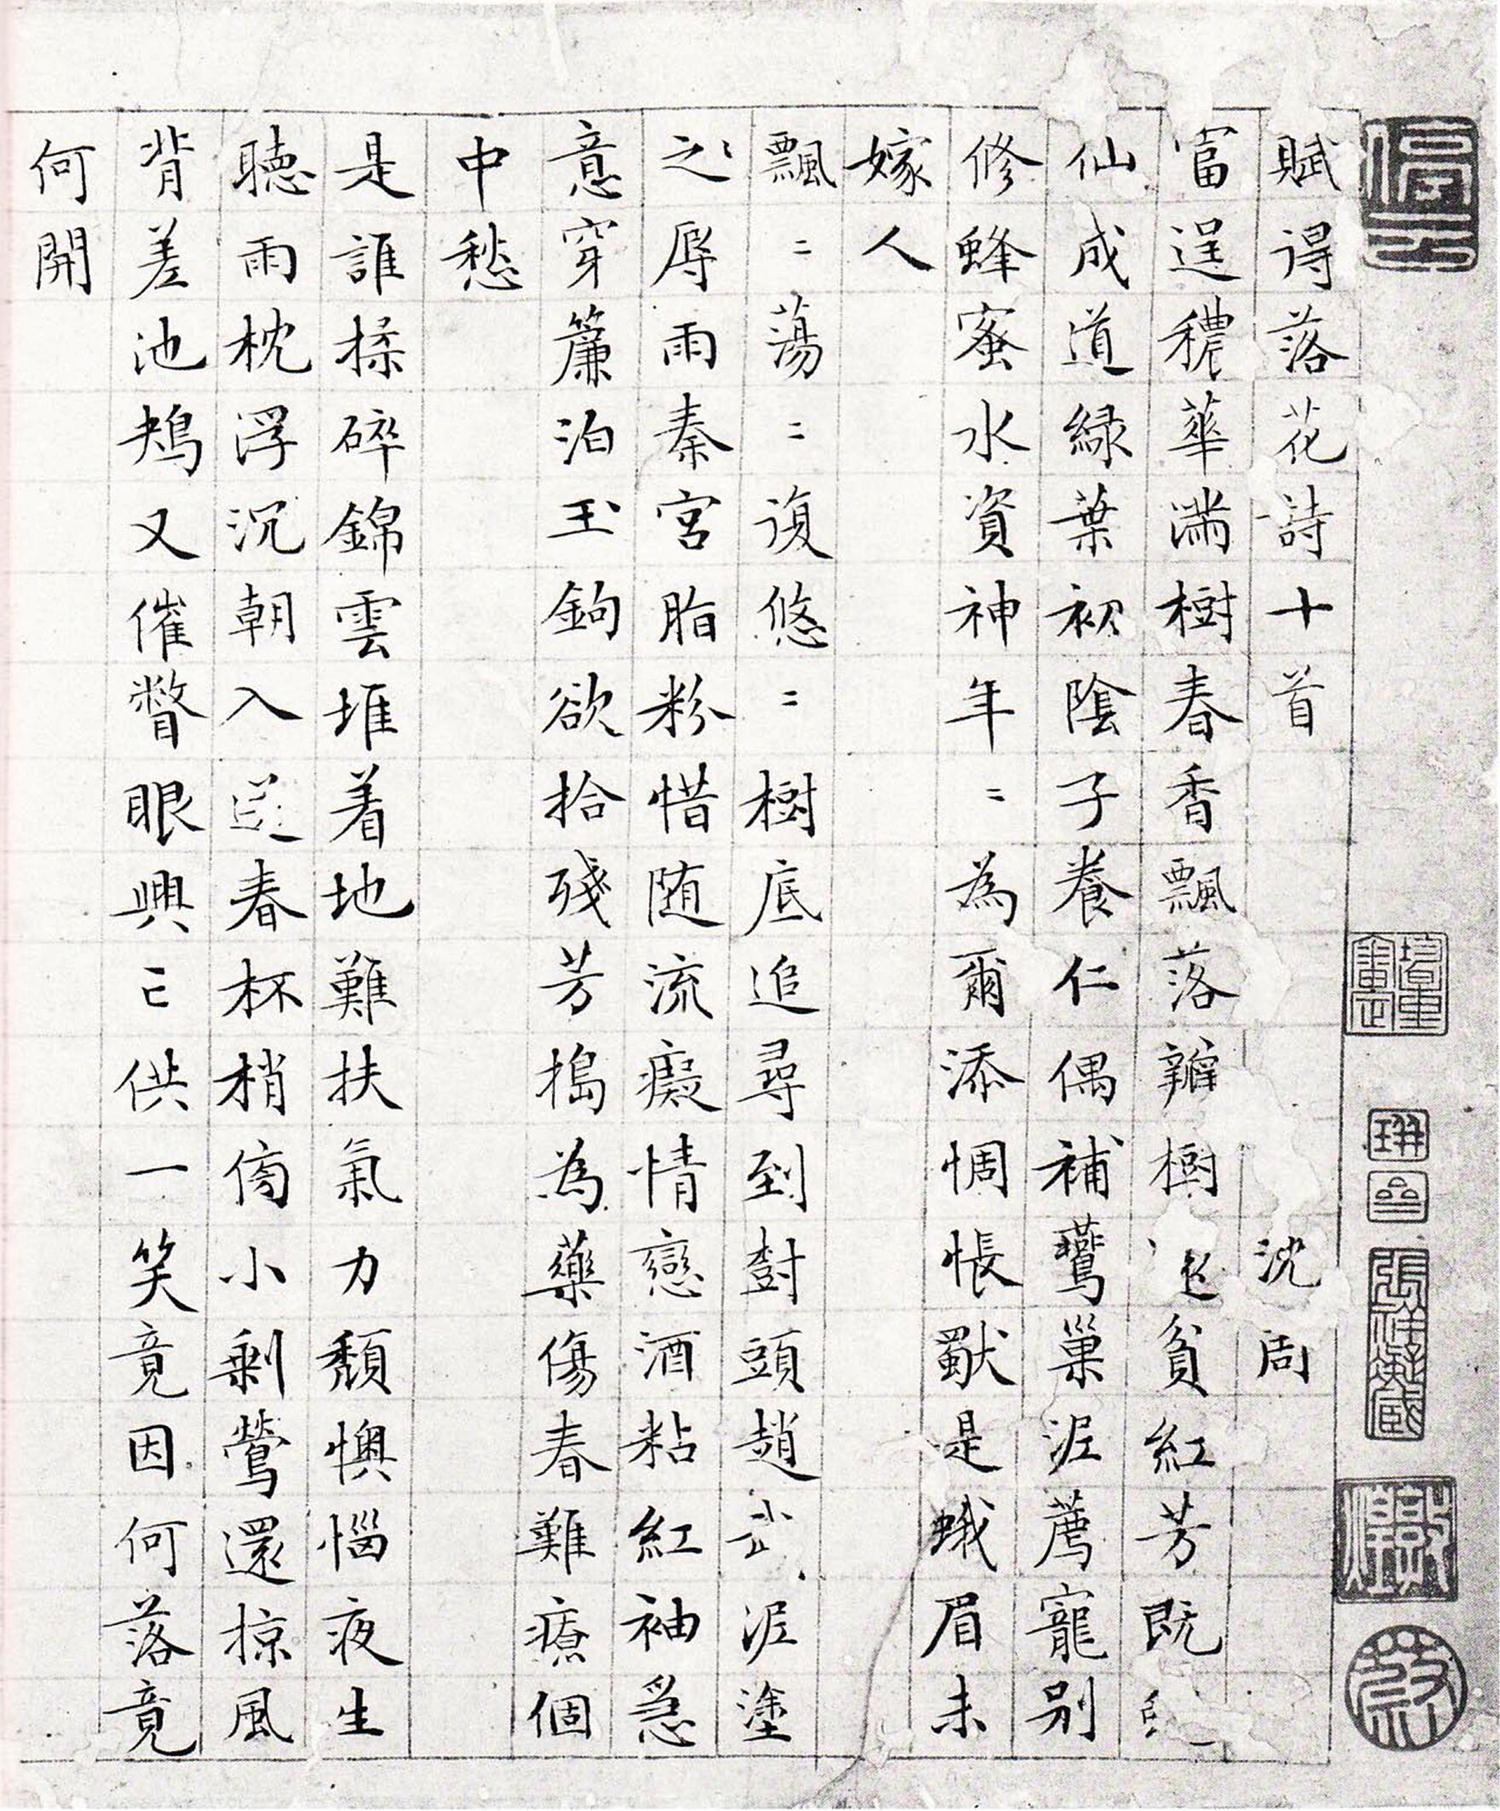 賦得落花詩十首 沈周
富逞穠華滿樹春香飄落瓣樹貧紅芳既
仙成道綠葉初陰子養仁偶補鶯巢泥薦寵別
修蜂蜜水資神年〻為爾添惆悵獸是蛾眉未
嫁人
飄〻蕩〻復悠〻樹底追尋到樹頭趙武泥塗
之辱雨秦宮脂粉惜随流癡情戀酒粘紅袖急
意穿簾泊玉鉤欲拾殘芳搗為藥傷春難療個
中愁
是誰揉碎錦雲堆着地難扶氣力頹懊惱夜生
聽雨枕浮沉朝入送春杯梢傍小剩鶯還掠風
背差池鴂又催瞥眼興亡供一笑竟因何落竟
何開